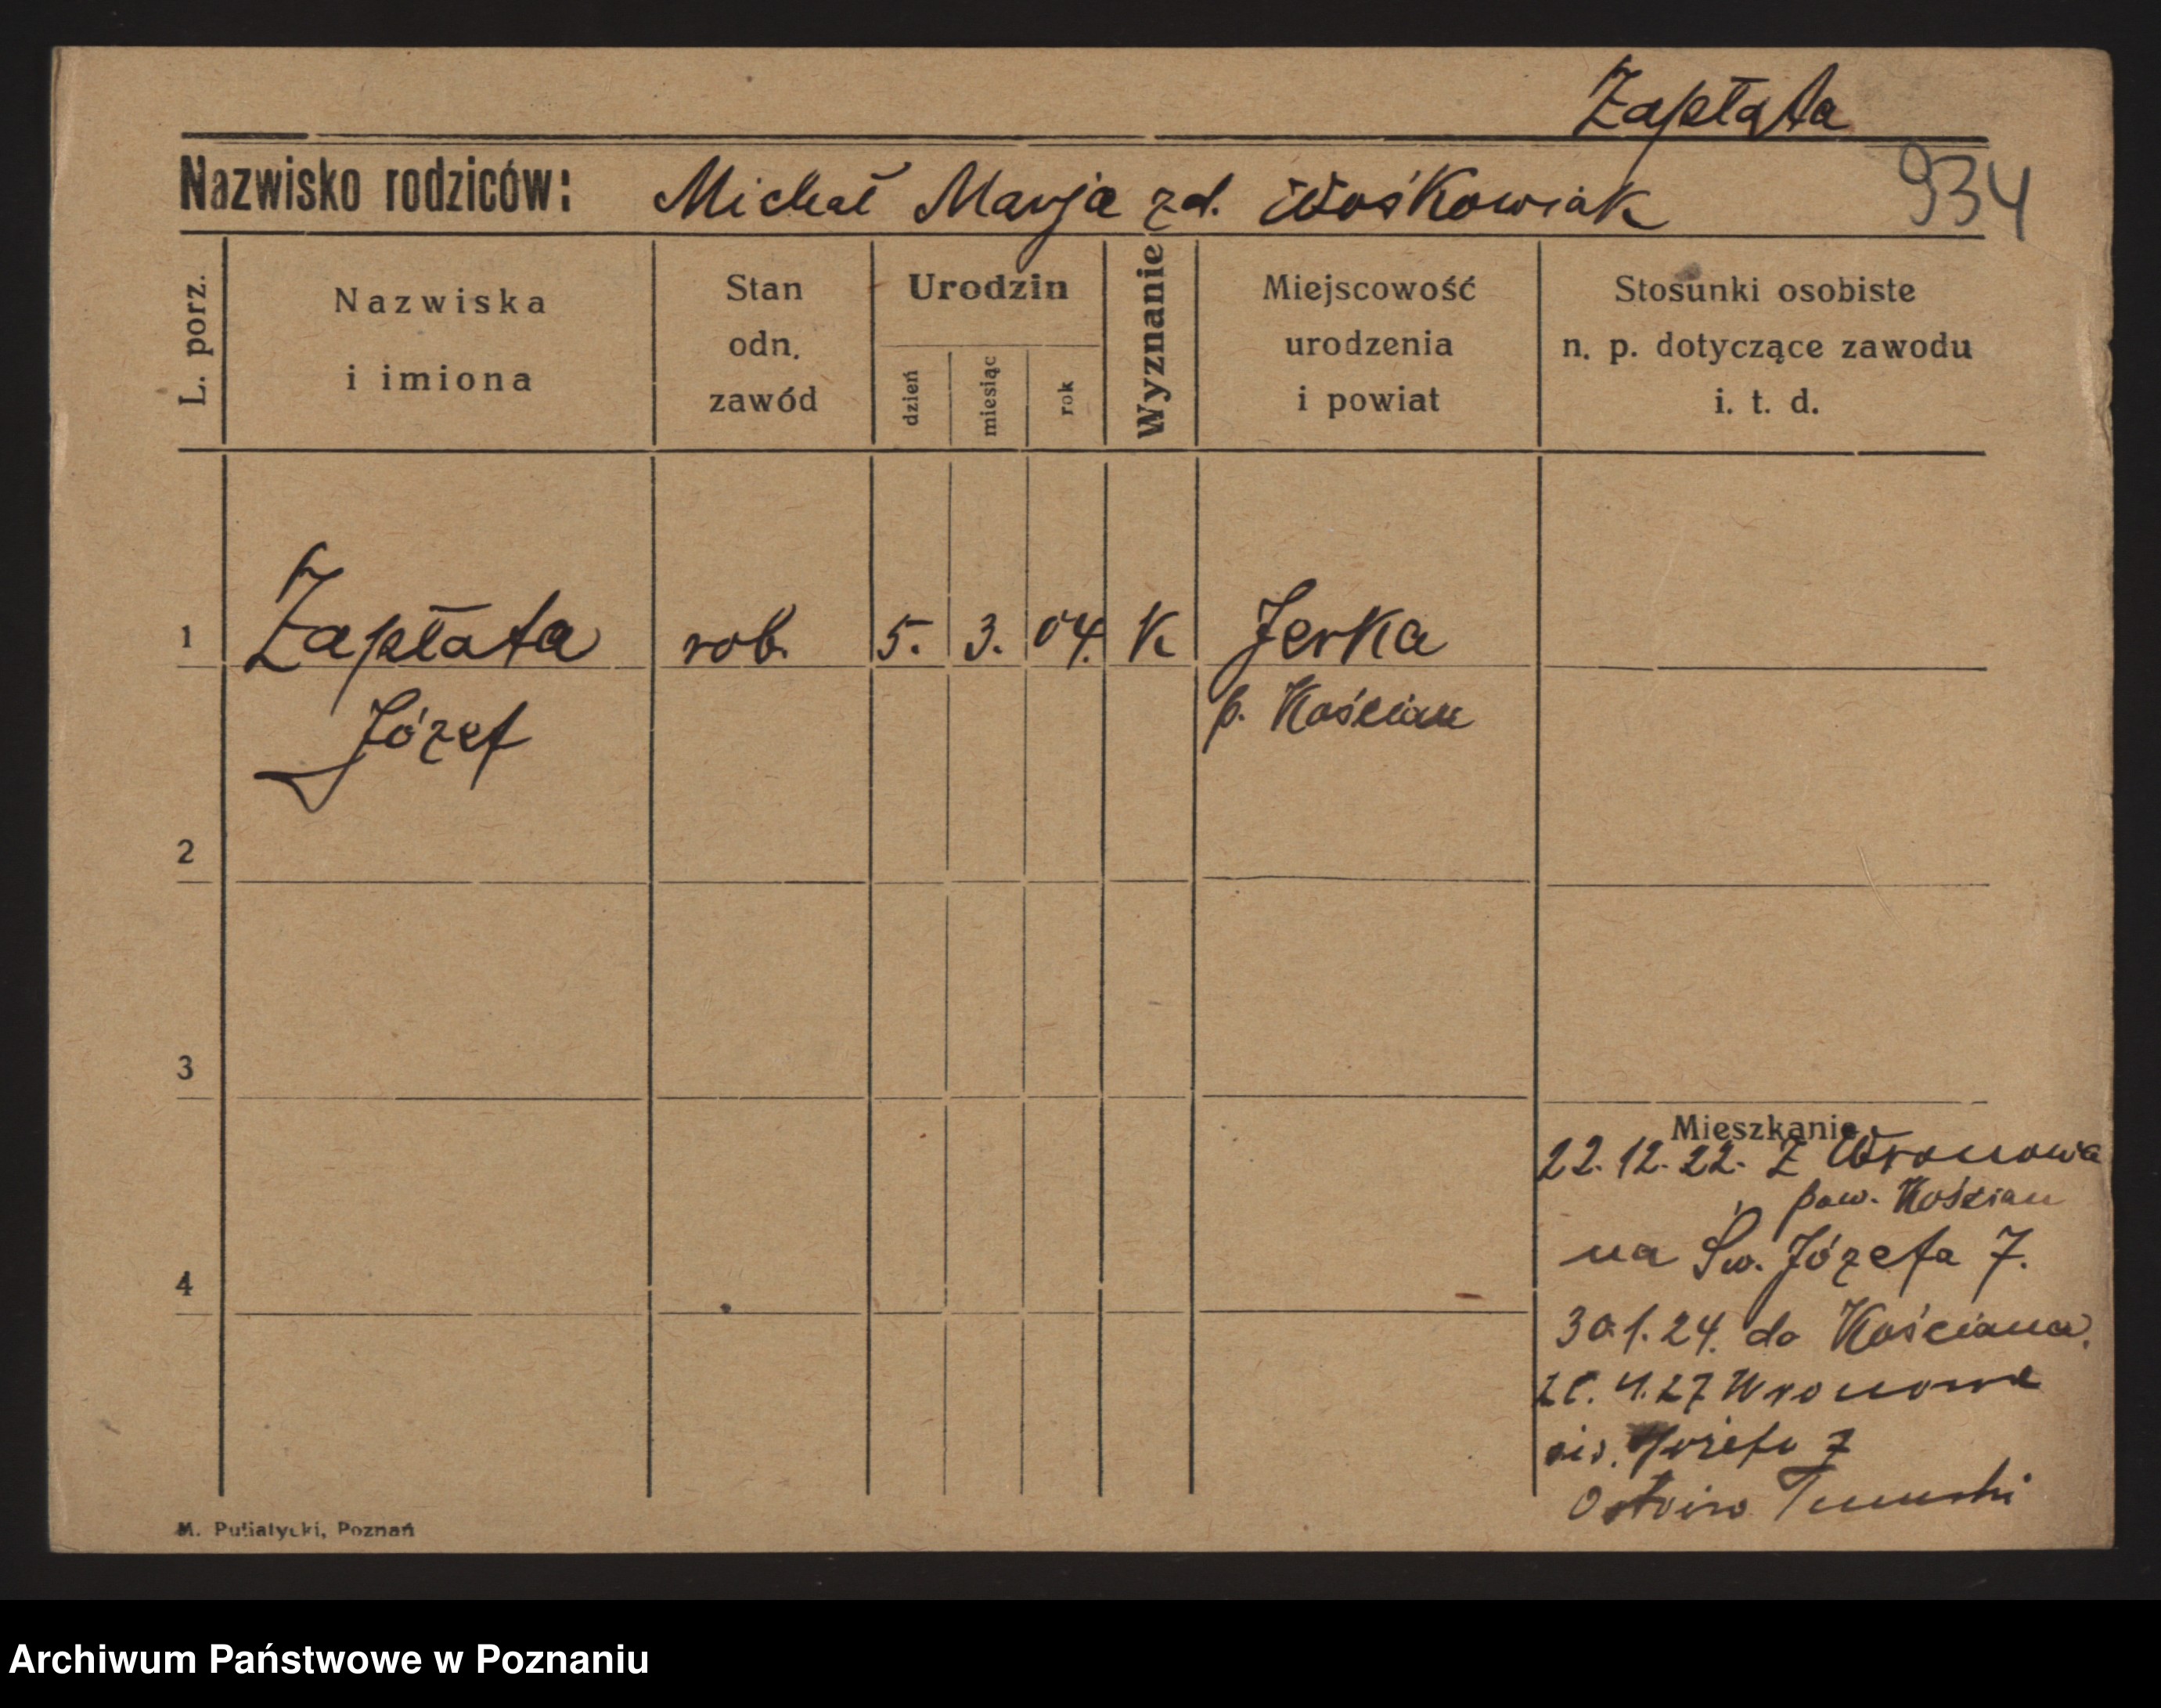 Zapłata
Nazwisko rodziców: Michał Marja zd. Wośkowiak 934
L. porz.
Nazwiska i imiona
Stan odn. zawód
Urodzin
dzień
miesiąc
rok
Wyznanie
Miejscowość urodzenia i powiat
Stosunki osobiste n. p. dotyczące zawodu i. t. d.
1 Zapłata rob. 5. 3. 04. K Jerka
Józef p. Kościan
2
3
Mieszkanie
22. 12. 22. Z Wronowa
pow. Kościan
na Św. Józefa 7.
4
30.1.24. do Kościana.
4.27 Wronowa
Józefa 7
M. Putiatycki, Poznań
Archiwum Państwowe w Poznaniu